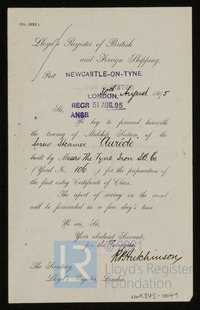 Lloyd's Register of British
and Foreign Shipping.
Port NEWCASTLE-ON-TYNE.
30th August 1895
LONDON.
RECD 31 AUG. 95
ANSD
Sir,
We beg to forward herewith
the tracing of Midship Section of the
Screw Steamer
built by Messrs The Tyne Iron SB. Co
(Yard No. 106) for the preparation of
the first entry Certificate of Class.
The report of survey on the vessel
will be forwarded in a few days time
We are, Sir,
Your obedient Servants,
for the Surveyors
The Secretary
Lloyd's Register, London.
Lloyd's Register
Foundation